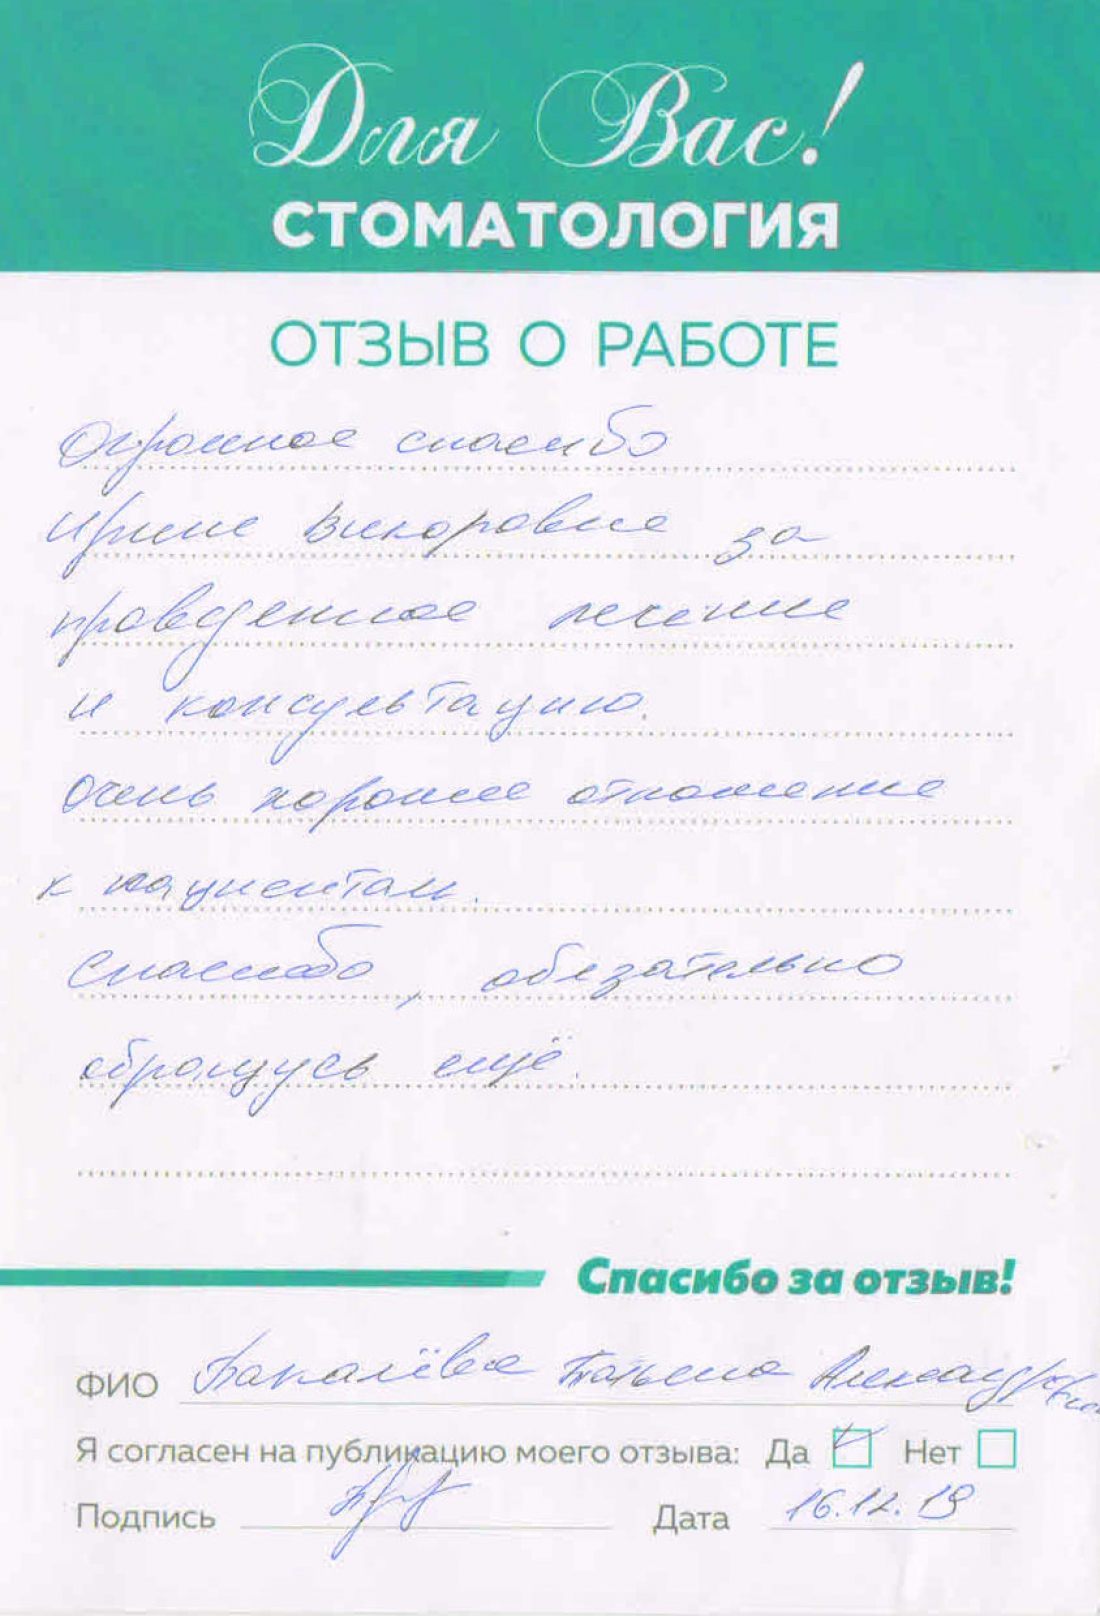 Для Вас!
СТОМАТОЛОГИЯ
ОТЗЫВ О РАБОТЕ
Огромное спасибо
Ирине Викоровне за
проведенное лечение
и консультацию.
Очень хорошее отношение
к пациентам.
Спасибо, обязательно
обращусь ещё.
Спасибо за отзыв!
ФИО Татьена Александровна
Я согласен на публикацию моего отзыва: Да Нет
Подпись Дата 16.12.19